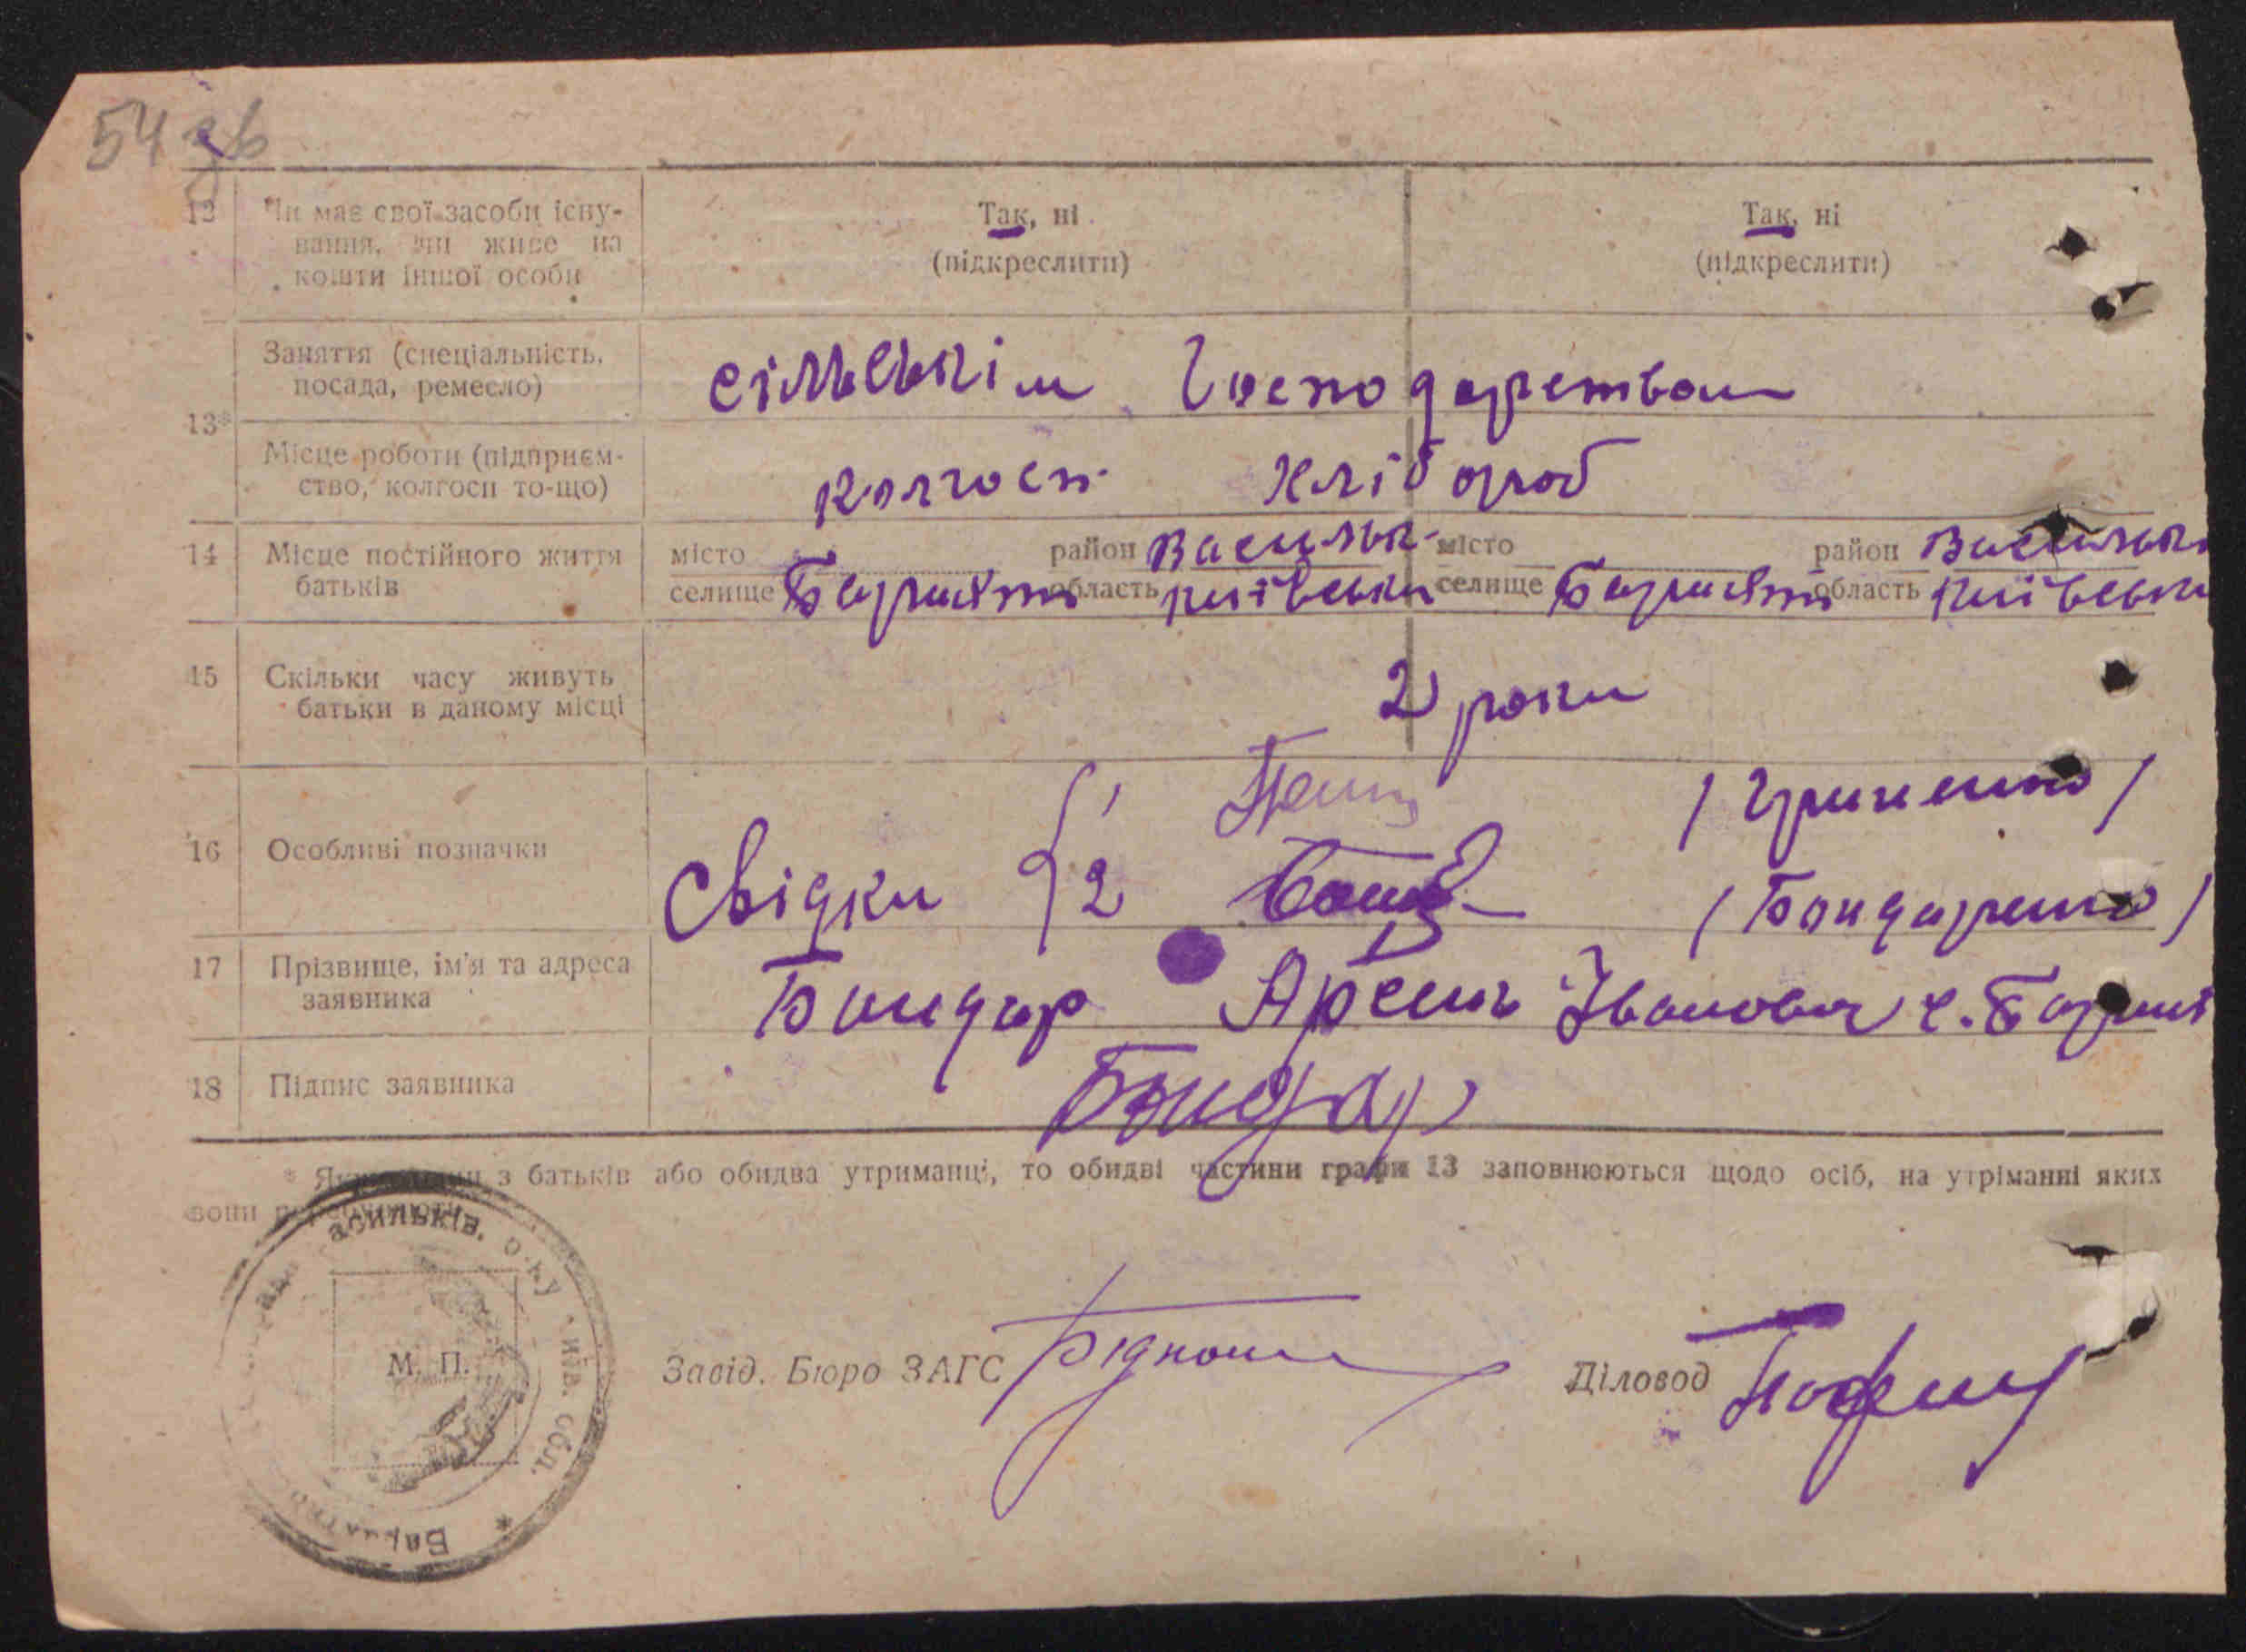 54 зв
12 Чи має свої засоби існу-
вання, чи живе на
кошти іншої особи
Так, ні
(підкреслити)
Так, ні
(підкреслити)
13*
Заняття (спеціальність,
посада, ремесло)
сільськім господарством
Місце роботи (підприєм-
ство, колгосп то-що)
колгосп хлібороб
14 Місце постійного життя
батьків
місто район Васильк.
селище область київська
місто район Васильк
селище область київськ
15 Скільки часу живуть
батьки в даному місці
2 роки
16 Особливі позначки
Свідки
1 /Гриненко/
2 /Бондаренко/
17 Прізвище, ім'я та адреса
заявника
Бондар Арсень Іванович с.
18 Підпис заявника
Бондар
* Якщо один з батьків або обидва утриманці, то обидві частини графи 13 заповнюються щодо осіб, на утріманні яких
вони перебувають
асильків. р-ну
иїв. обл.
М. П.
Завід. Бюро ЗАГС
Діловод